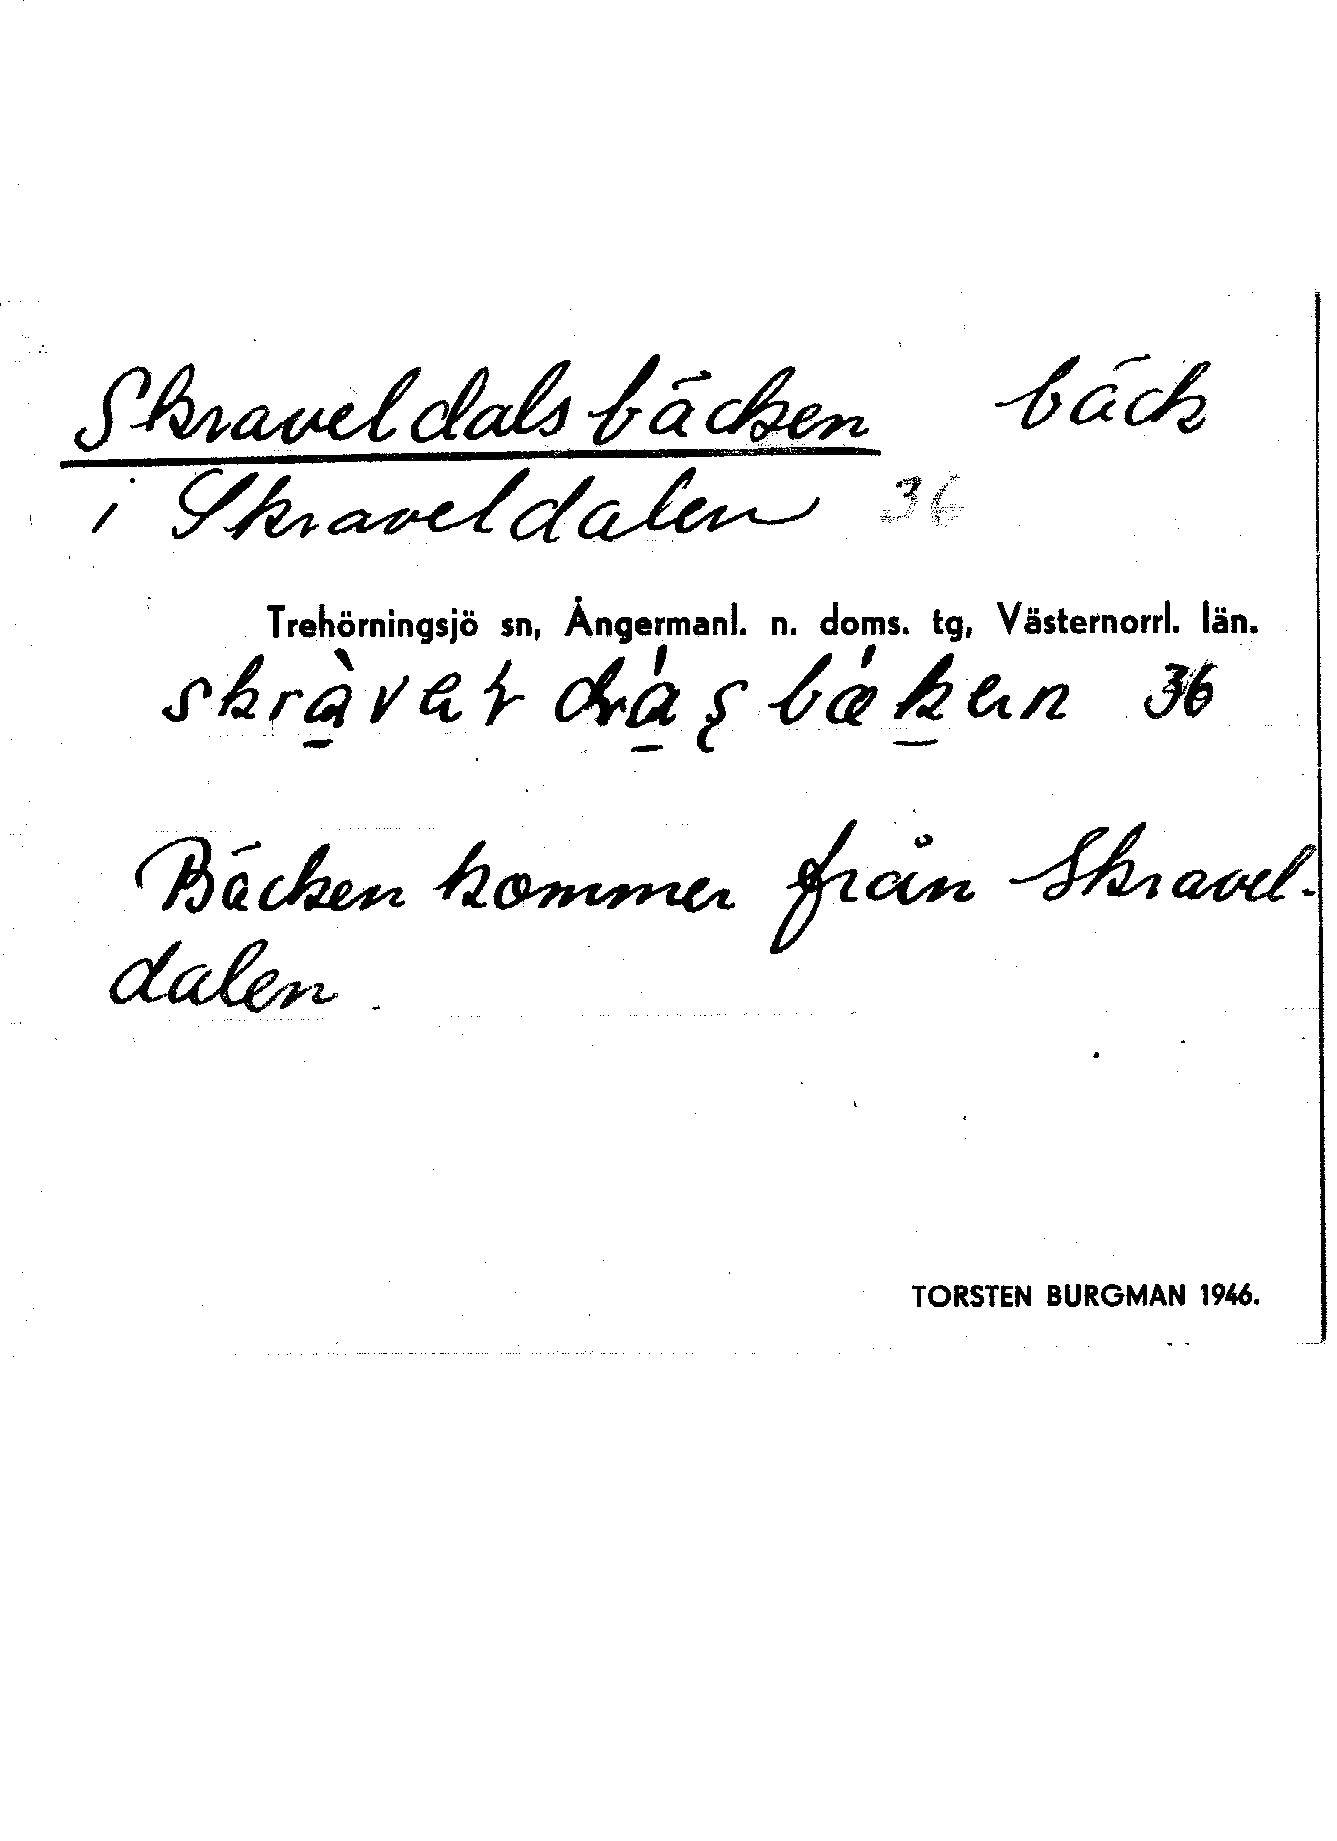 Skraveldalsbäcken bäck
i Skraveldalen 36
Trehörningsjö sn, Ångermanl. n. doms. tg, Västernorrl. län.
36
Bäcken kommer från Skravel-
dalen
TORSTEN BURGMAN 1946.